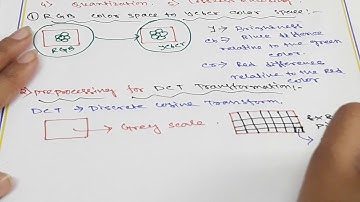 4) Quantization 5)
① RGB color space to Ycbcr color space:-
RGB
Ycbcr
y → Brightness
cb → Blue difference
relative to the green
color.
cr → Red difference
relative to the Red
color
2) Preprocessing for DCT Transformation:-
DCT → Discrete Cosine Transform.
→ Grey scale.
8 x 8